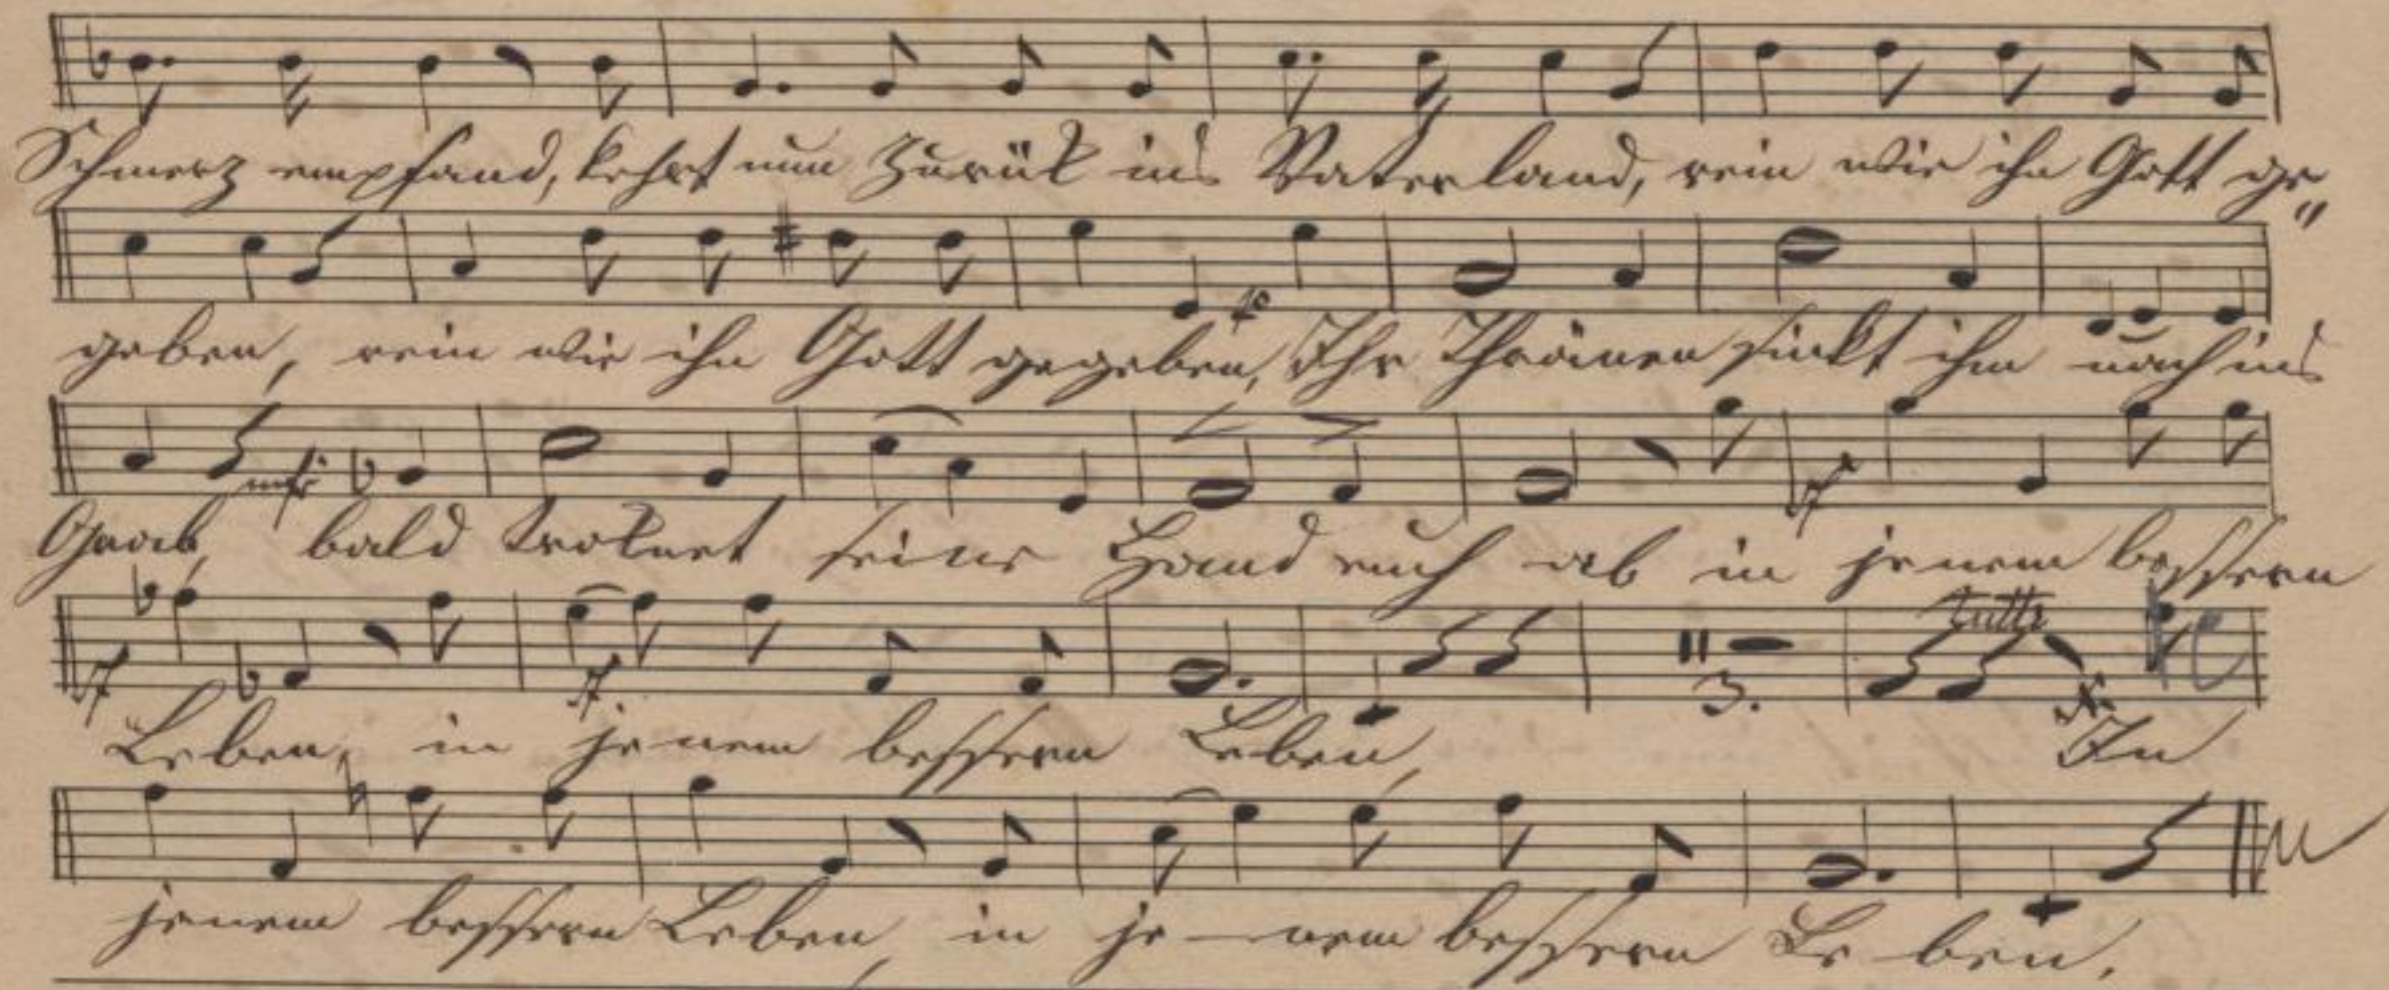 Schmerz empfand, kehrt nun zurük ins Vaterland, rein wie ihn Gott ge"
geben, rein wie ihn Gott gegeben, Ihr Thränen sinkt ihm nach ins
mf
Grab, bald troknet seine Hand euch ab in jenem bessern
tutti
3.
Leben, in jenem bessern Leben, In
jenem bessern Leben, in je-nem bessern Le ben.